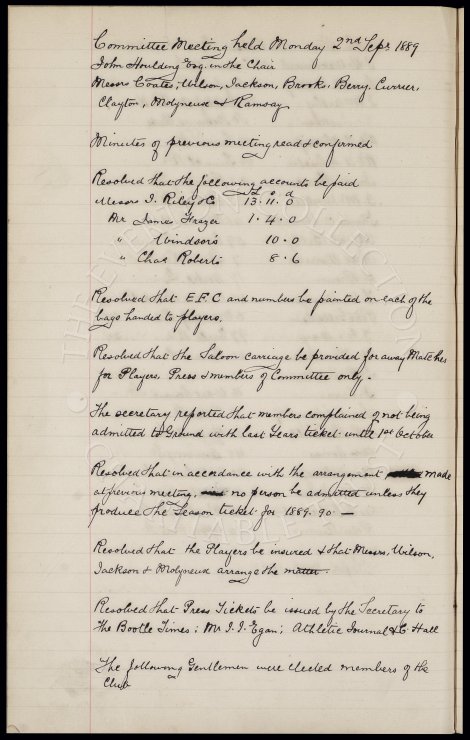 Committee Meeting held Monday 2nd Sepr 1889
John Houlding Esq. in the Chair
Messrs Coates, Wilson, Jackson, Brooks, Berry, Currier,
Clayton, Molyneux & Ramsay
Minutes of previous meeting read & confirmed
Resolved that the following accounts be paid
£ s d
Messrs J. Riley & Co 13 . 11 . 0
Mr James Frazer 1 . 4 . 0
" Windsors 10 . 0
" Chas Roberts 8 . 6
Resolved that E.F.C and numbers be painted on each of the
bags handed to players.
Resolved that the Saloon carriage be provided for away Matches
for Players, Press & members of Committee only.
The secretary reported that members complained of not being
admitted to Ground with last Years ticket until 1st October
Resolved that in accordance with the arrangement made
at previous meeting, no person be admitted unless they
produce the Season ticket for 1889-90 —
Resolved that the Players be insured & that Messrs, Wilson,
Jackson & Molyneux arrange the matter.
Resolved that Press Tickets be issued by the Secretary to
the Bootle Times; Mr J. J. Egan; Athletic Journal & C. Hall
The following Gentlemen were elected members of the
Club
THE EVERTON COLLECTION
CHARITABLE